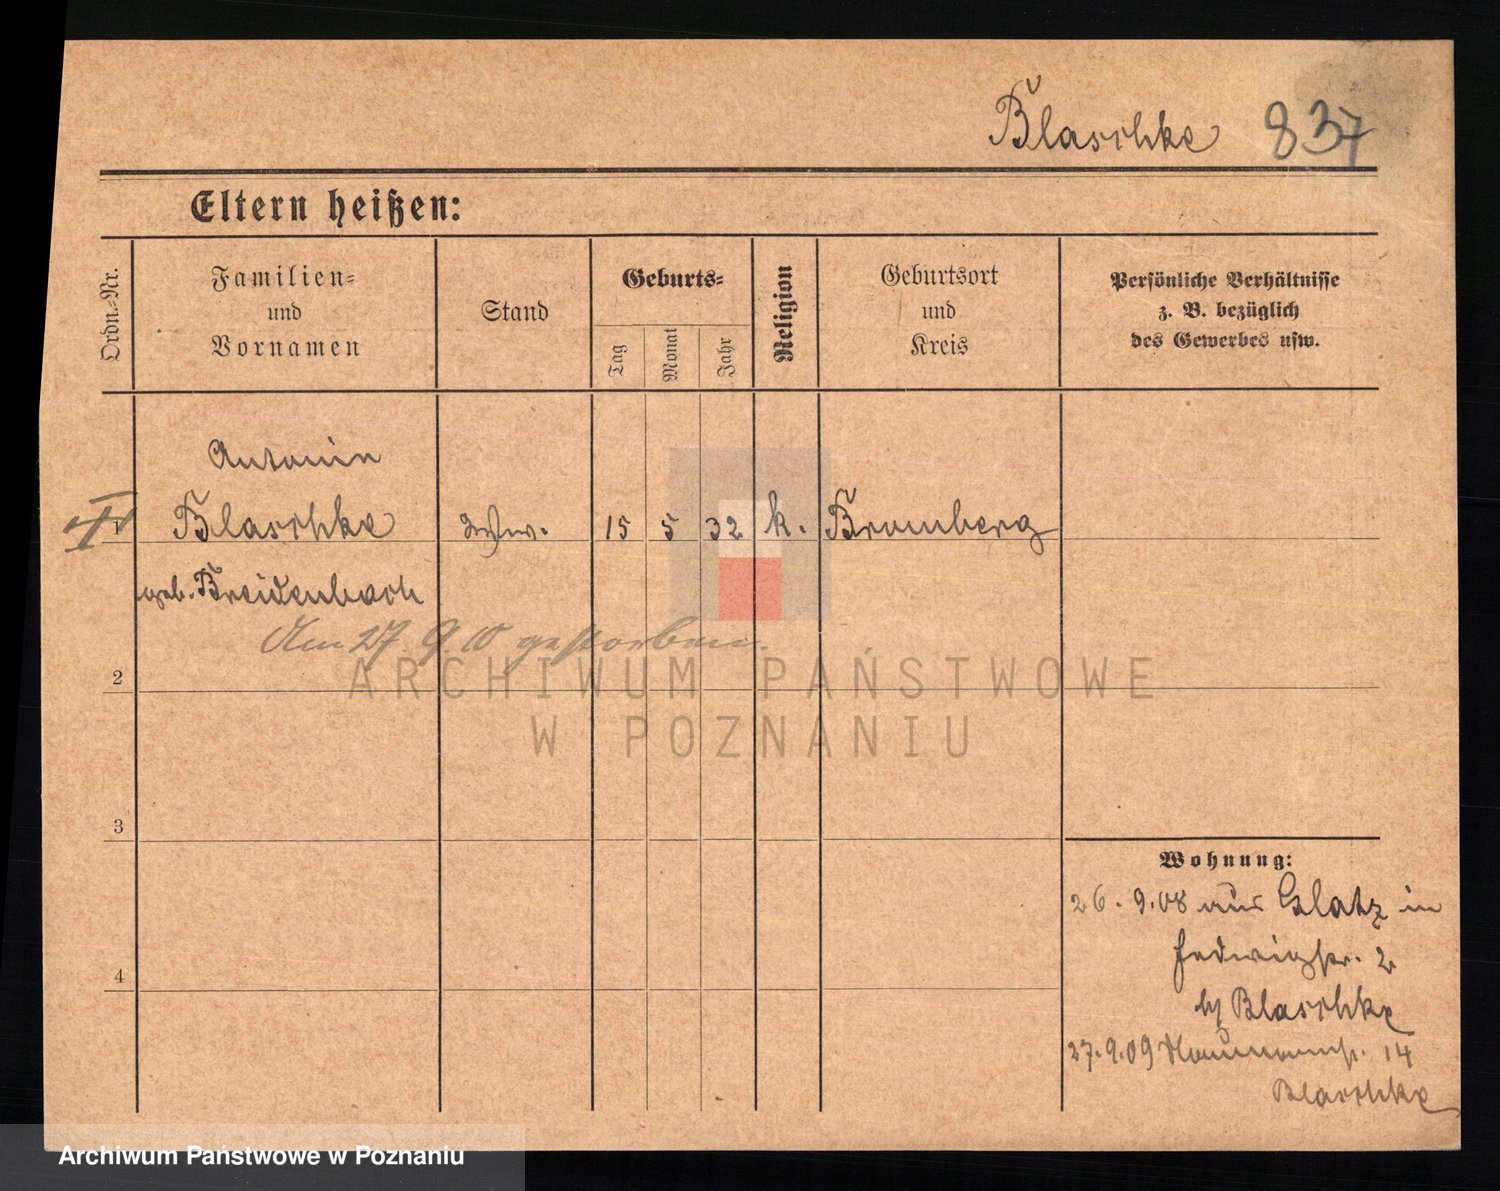 Blaschke 837
Eltern heißen:
Ordn.-Nr.
Familien-
und
Vornamen
Stand
Geburts-
Tag
Monat
Jahr
Religion
Geburtsort
und
Kreis
Persönliche Verhältnisse
z. B. bezüglich
des Gewerbes usw.
Antonin
1 Blaschke 15 5 32 k. Bromberg
geb. Breidenbach
Am 27. 9. 10 gestorben.
2
3
4
Wohnung:
26. 9. 08 aus Glatz in
Hedwigstr. 2
by Blaschke
27. 9. 09 Naumannstr. 14
Blaschke
ARCHIWUM PAŃSTWOWE
W POZNANIU
Archiwum Państwowe w Poznaniu